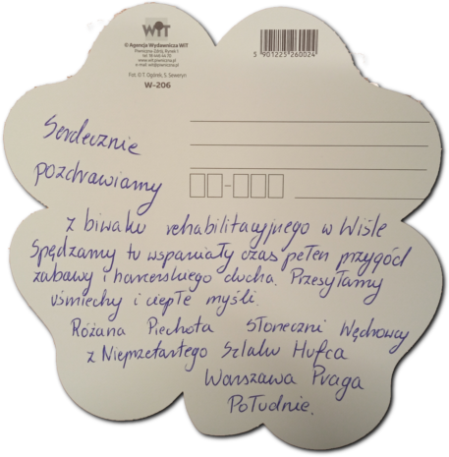 WiT
© Agencja Wydawnicza WiT
W-206
3 901225 260024
Serdecznie
pozdrawiamy
z biwaku rehabilitacyjnego w Wiśle
Spędzamy tu wspaniały czas pełen przygód
zabawy i harcerskiego ducha. Przesyłamy
uśmiechy i ciepłe myśli.
Różana Piechota Słoneczni Wędrowcy
z Nieprzetartego Szlaku Hufca
Warszawa Praga
Południe.